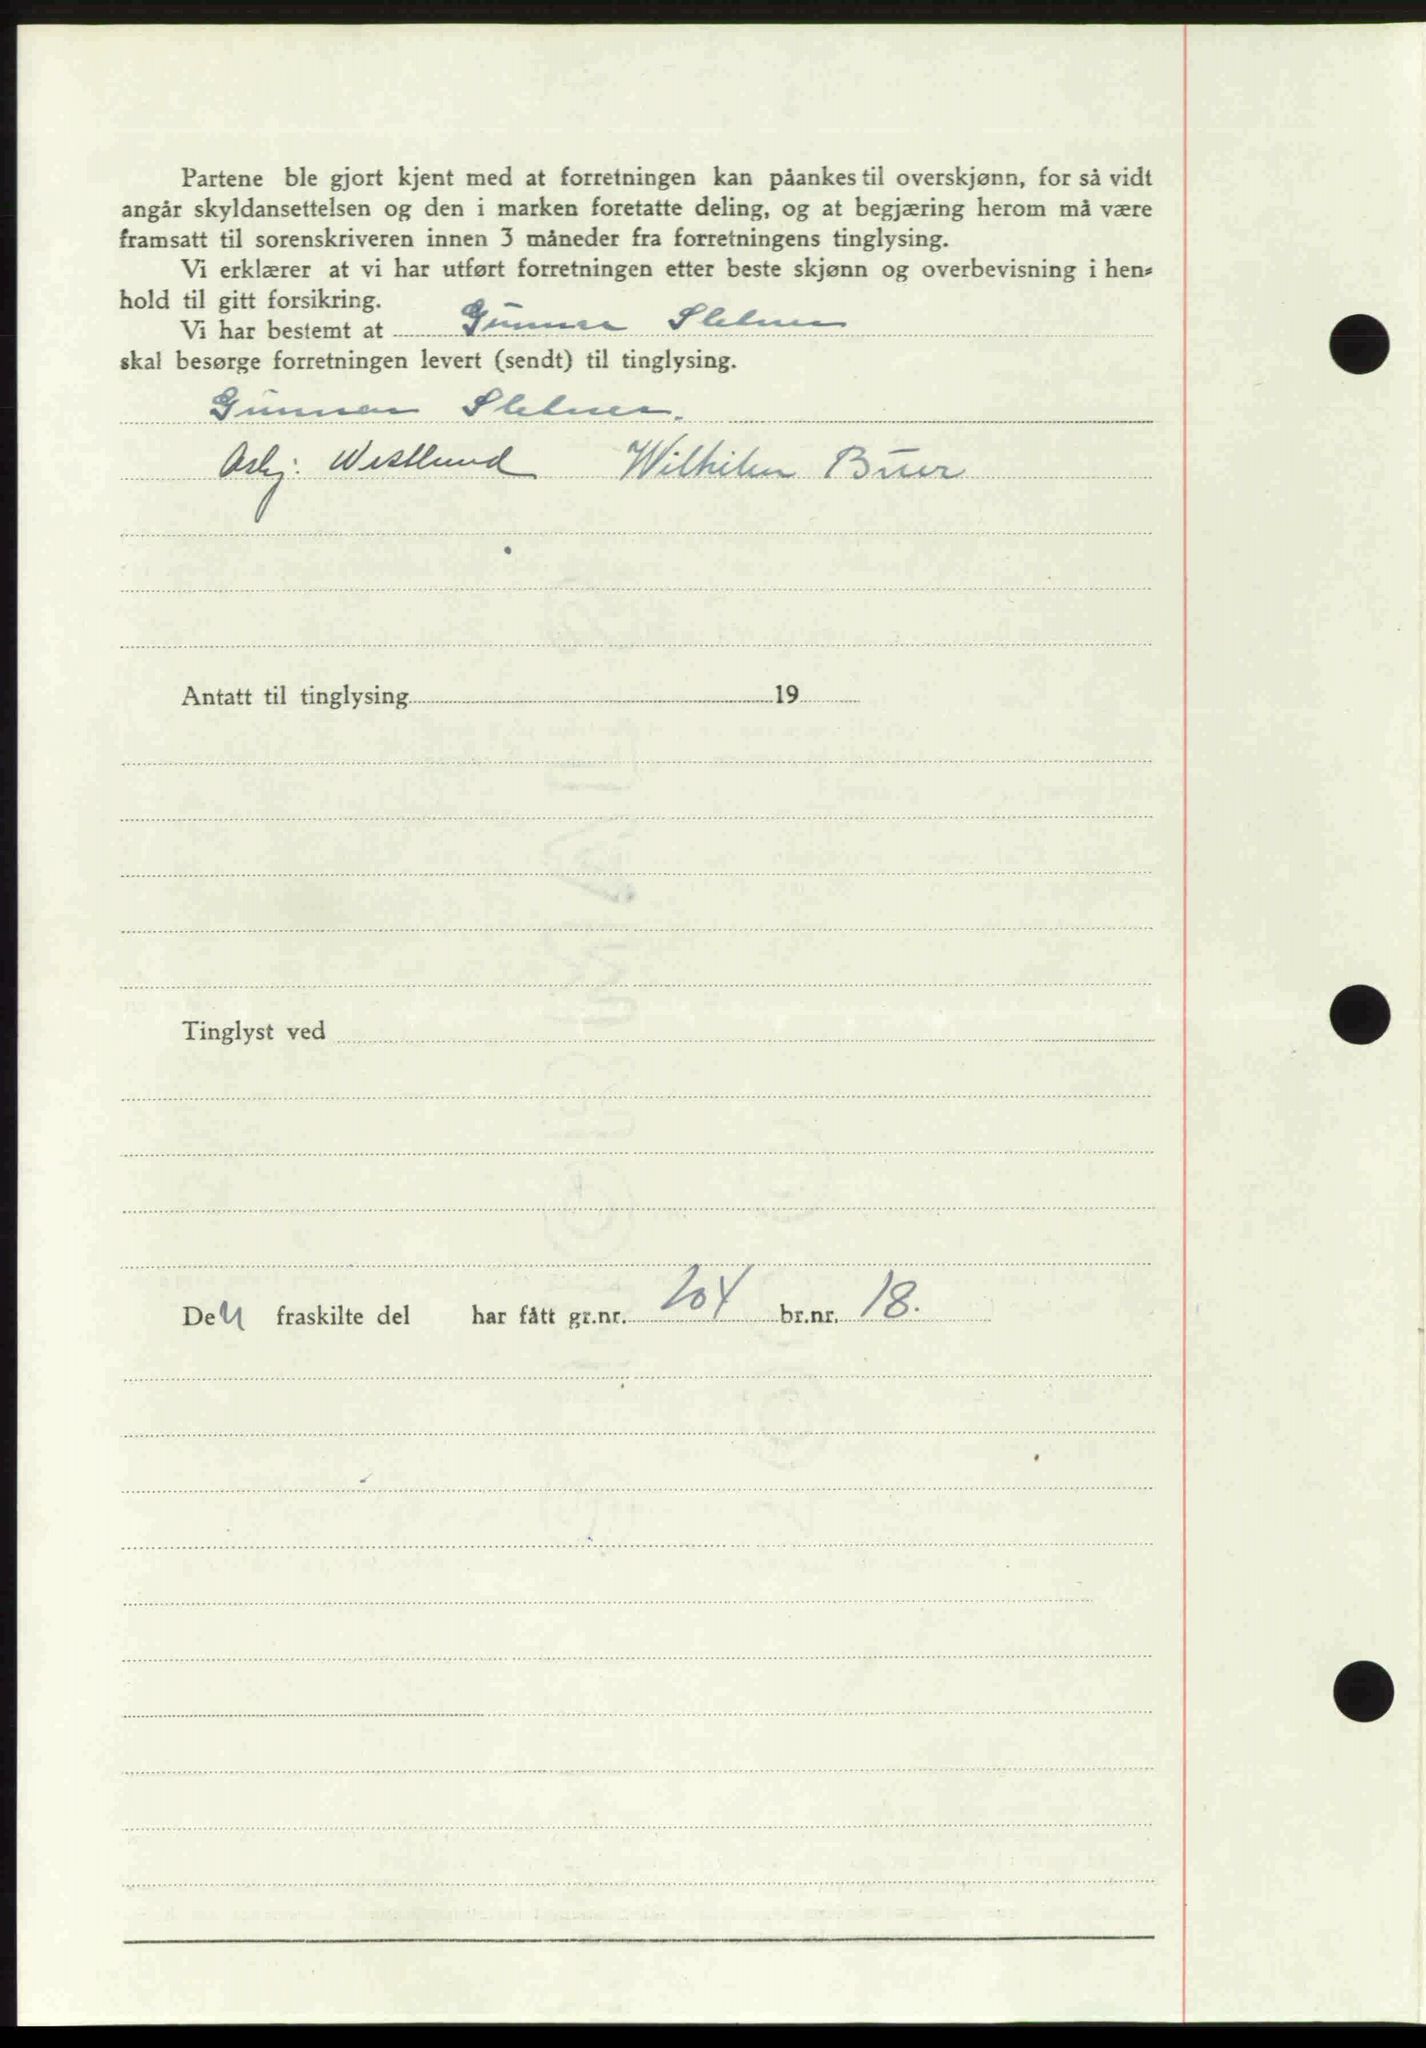 Partene ble gjort kjent med at forretningen kan påankes til overskjønn, for så vidt
angår skyldansettelsen og den i marken foretatte deling, og at begjæring herom må være
framsatt til sorenskriveren innen 3 måneder fra forretningens tinglysing.
Vi erklærer at vi har utført forretningen etter beste skjønn og overbevisning i hen-
hold til gitt forsikring.
Vi har bestemt at Gunnar Sletner
skal besørge forretningen levert (sendt) til tinglysing.
Gunnar Sletner.
Asbj. Westlund Wilhelm Buer
Antatt til tinglysing 19
Tinglyst ved
Den fraskilte del har fått gr.nr. 204 br.nr. 18.